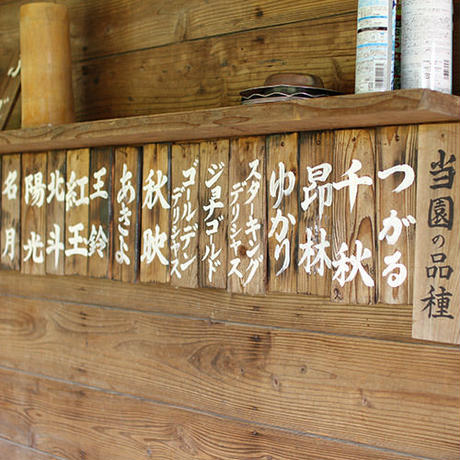 当園の品種
つがる
千秋
昂林
ゆかり
スターキング
デリシャス
ジョナゴールド
ゴールデン
デリシャス
秋映
あきよ
王鈴
紅玉
北斗
陽光
名月